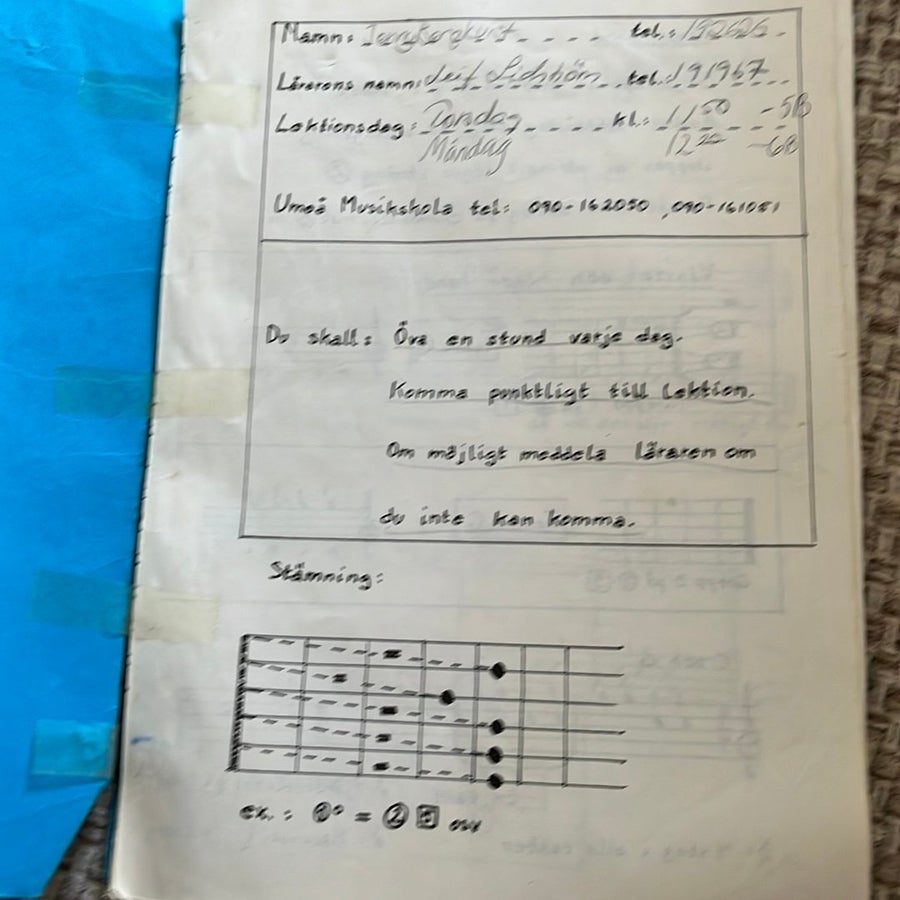 Namn: tel.: 192626
Lärarens namn: Leif tel.: 191967
Lektionsdag: Torsdag kl.: 11 50 - 5B
Måndag 12 20 - 6B
Umeå Musikskola tel: 090-162050, 090-161051
Du skall: Öva en stund varje dag.
Komma punktligt till Lektion.
Om möjligt meddela läraren om
du inte kan komma.
Stämning:
ex.: ①° = ② 5 osv